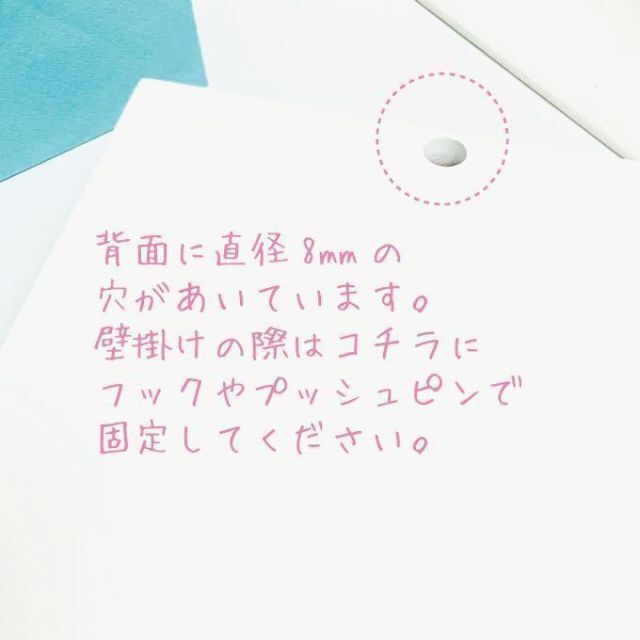 背面に直径8mmの
穴があいています。
壁掛けの際はコチラに
フックやプッシュピンで
固定してください。